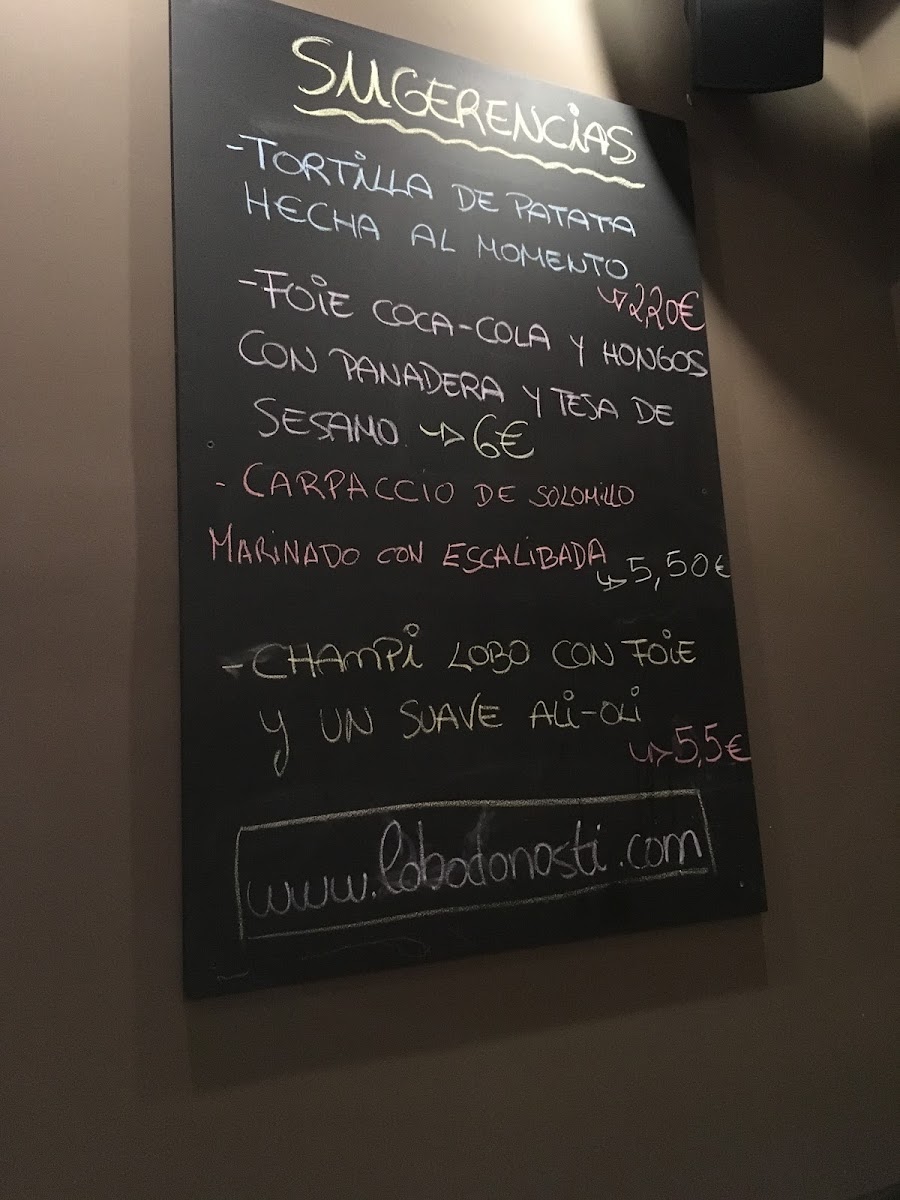 SUGERENCIAS
-TORTILLA DE PATATA
HECHA AL MOMENTO
↳2,20€
-FOIE COCA-COLA Y HONGOS
CON PANADERA Y TEJA DE
SESAMO. ↳6€
- CARPACCIO DE SOLOMILLO
MARINADO CON ESCALIBADA
↳5,50€
-CHAMPI LOBO CON FOIE
Y UN SUAVE ALI-OLI
↳5,5€
www.lobodonosti.com